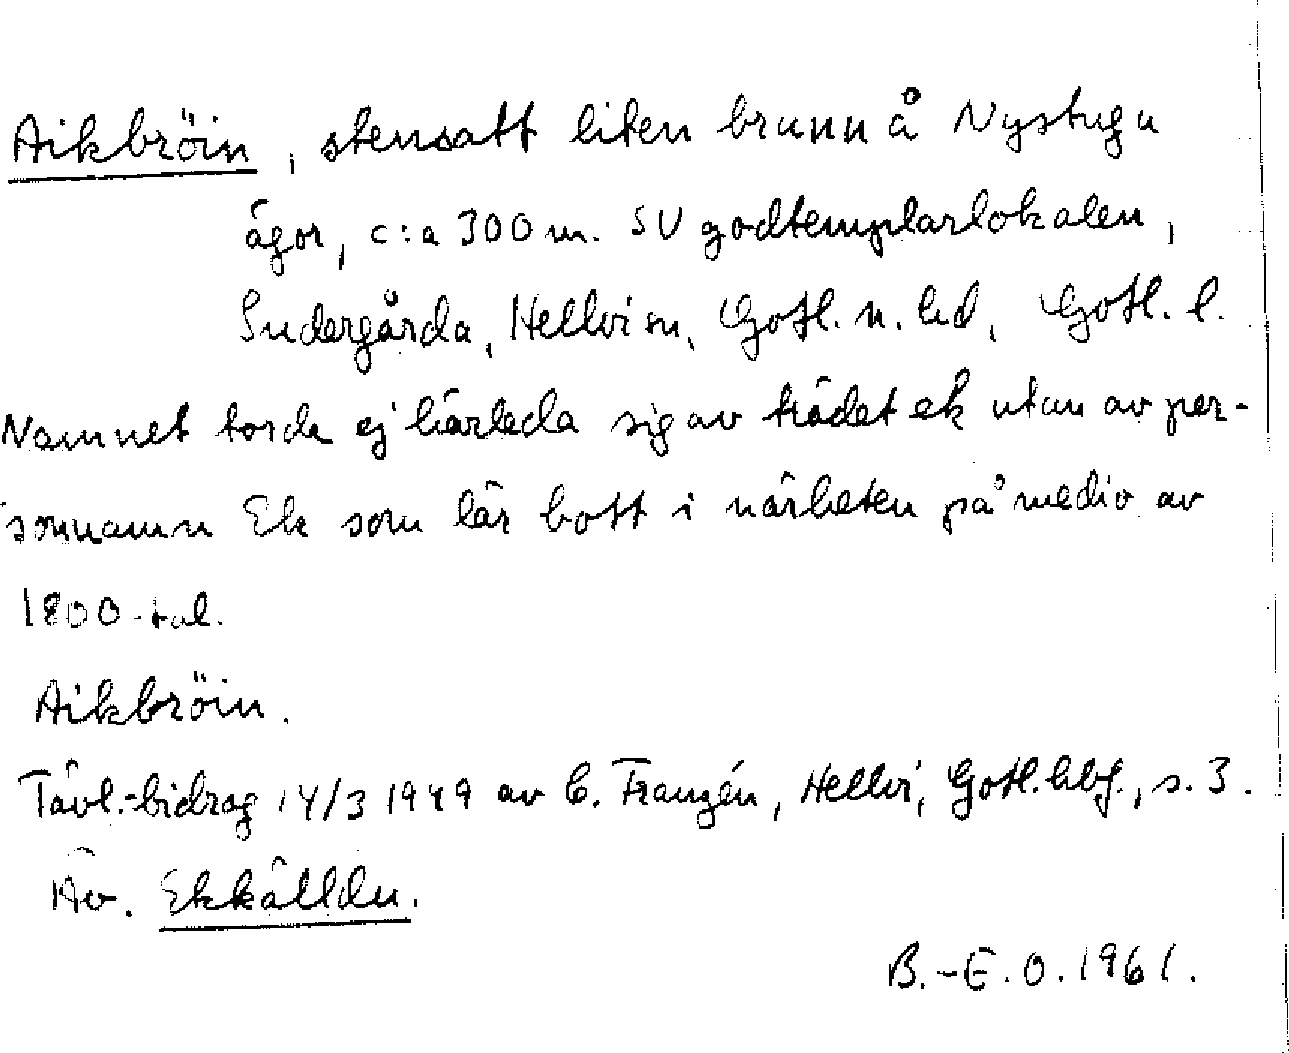 Aikbröin, stensatt liten brunn å Nystugu
ägor, c:a 300 m. SV godtemplarlokalen,
Sudergårda, Hellvi sn, Gotl. n. hd, Gotl. l.
Namnet torde ej härleda sig av trädet ek utan av per-
sonnamn Ek som lär bott i närheten på medio av
1800-tal.
Aikbröin.
Tävl.-bidrag 14/3 1949 av C. Franzén, Hellvi, Gotl. hbf., s. 3.
Äv. Ekkälldu.
B.-E. O. 1961.